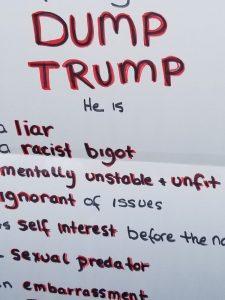 DUMP
TRUMP
He is
a liar
a racist bigot
mentally unstable + unfit
ignorant of issues
self interest before the
sexual predator
an embarrassment